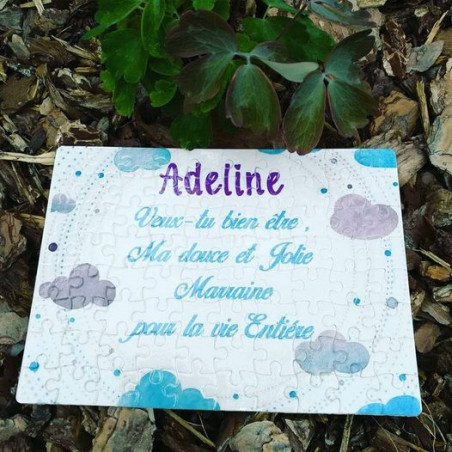 Adeline
Veux-tu bien être,
Ma douce et Jolie
Marraine
pour la vie Entiére